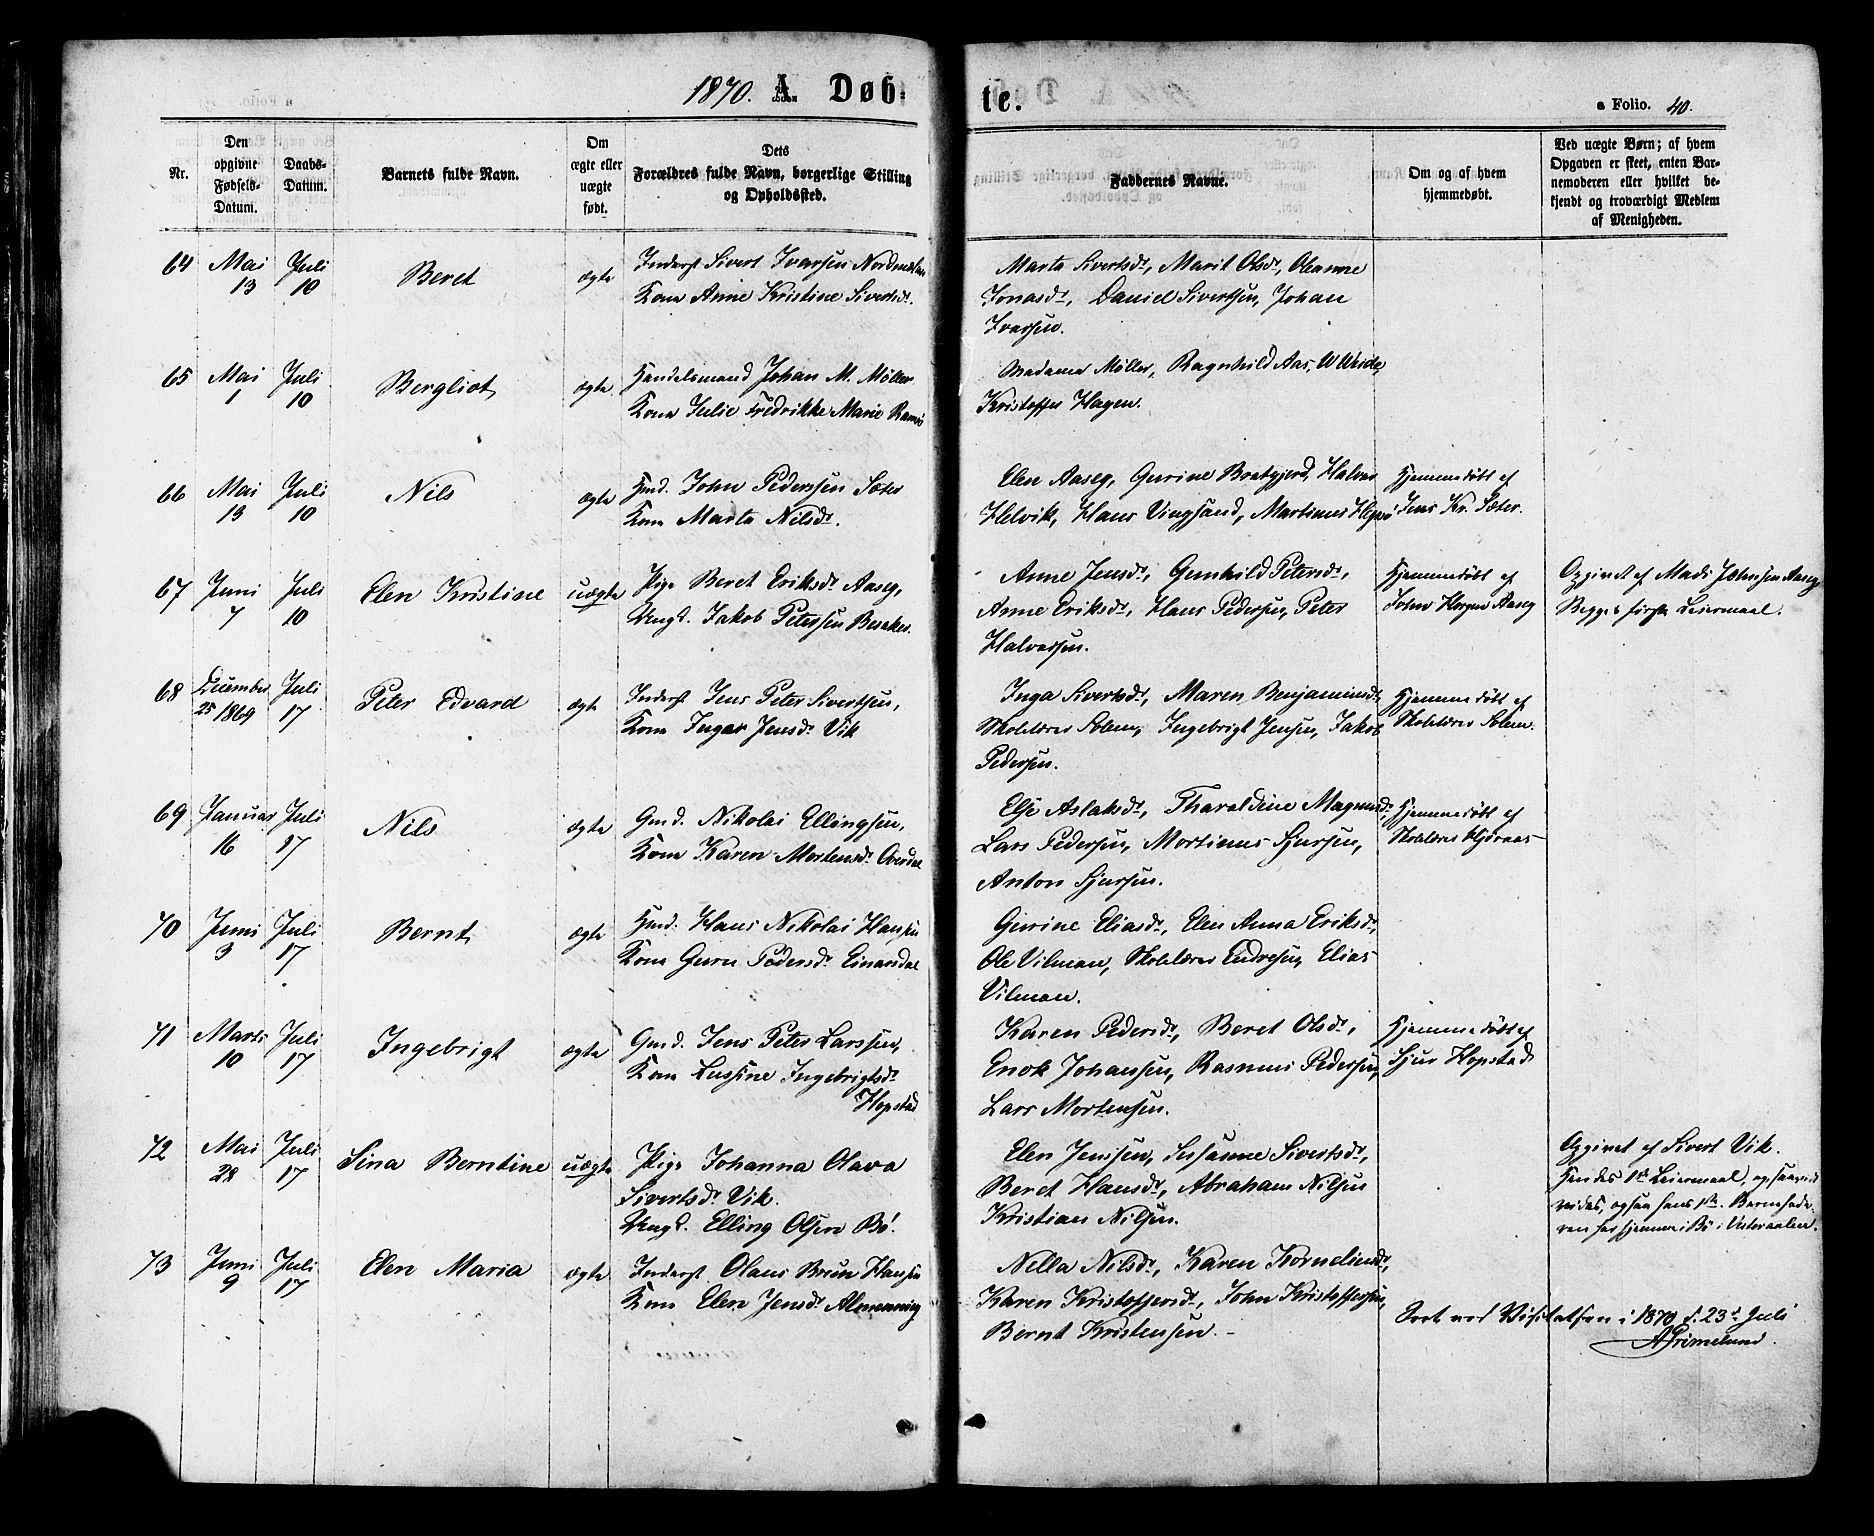 1870. A. Døb-
te.
a Folio. 40.
Nr.
Den opgivne Fødsels-Datum.
Daabs-Datum.
Barnets fulde Navn.
Om ægte eller uægte født.
Dets Forældres fulde Navn, borgerlige Stilling og Opholdssted.
Faddernes Navne.
Om og af hvem hjemmedøbt.
Ved uægte Børn; af hvem Opgaven er skeet, enten Barnemoderen eller hvilket bekjendt og troværdigt Medlem af Menigheden.
64 Mai 13 Juli 10 Beret ægte
Inderst Sivert Ivarsen Nordmelan
Kone Anne Kristine Sivertsdr.
Marta Sivertsdr, Marit Olsdr, Oleanne
Jonasdr, Daniel Sivertsen, Johan
Ivarsen.
65 Mai 1 Juli 10 Bergliot ægte
Handelsmand Johan M. Møller
Kone Julie Fredrikke Marie
Madame Møller, Ragnhild Aas, W Weide,
Kristoffer Hagen.
66 Mai 13 Juli 10 Nils ægte
Hmd. John Pedersen Sæter
Kone Marta Nilsdr.
Elen Aaseg, Gurine Bratgjerd, Halvar
Helvik, Hans Vingsand, Martinus
Hjemmedøbt af
Jens Kr. Sæter.
67 Juni 7 Juli 10 Elen Kristine uægte
Pige Beret Eriksdr Aaseg,
Ungk. Jakob Petersen Besaker.
Anne Jensdr, Gunhild Petersdr,
Anne Eriksdr, Hans Pedersen, Peter
Halvarsen.
Hjemmedøbt af
John Aaseg
Opgivet af Mads Johnsen Aaseg
Begges første Leiermaal.
68 December 25 1869 Juli 17 Peter Edvard ægte
Inderst Jens Peter Sivertsen,
Kone Inger Jensdr Vik
Inga Sivertsdr, Maren Benjaminsdr
Skolelærer Solem, Ingebrigt Jensen, Jakob
Pedersen.
Hjemmedøbt af
Skolelærer Solem.
69 Januar 16 Juli 17 Nils ægte
Gmd. Nikolai Ellingsen,
Kone Karen Mortensdr
Else Aslaksdr, Tharaldine Magnusdr,
Lars Pedersen, Mortinus Sjursen,
Anton Sjursen.
Hjemmedøbt af
Skolelærer
70 Juni 3 Juli 17 Bernt ægte
Hmd. Hans Nikolai Hansen
Kone Guru Pedersdr Einarsdal
Gurine Eliasdr, Elen Anna Eriksdr,
Ole Vilman, Skolelærer Endresen, Elias
Vilman.
71 Marts 10 Juli 17 Ingebrigt ægte
Gmd. Jens Peter Larssen,
Kone Lussine Ingebrigtsdr
Hopstad
Karen Pedersdr, Beret Olsdr,
Enok Johansen, Rasmus Pedersen,
Lars Mortensen.
Hjemmedøbt af
Sjur Hopstad
72 Mai 28 Juli 17 Sina Berntine uægte
Pige Johanna Olava
Sivertsdr Vik.
Ungk. Elling Olsen Bø.
Elen Jensen, Susanne Sivertsdr,
Beret Hansdr, Abraham Nilsen
Kristian Nilsen.
Opgivet af Sivert Vik.
Hendes 1ste Leiermaal, og saavidt
vides, ogsaa hans 1ste. Barnefade-
ren har hjemme i Bø i Vesteraalen.
73 Juni 9 Juli 17 Elen Maria ægte
Inderst Olaus Bruun Hansen
Kone Elen Jensdr Almenning
Nella Nilsdr, Karen Korneliusdr,
Karen Kristoffersdr, John Kristoffersen,
Bernt Kristensen.
Seet ved Visitatsen i 1870 d. 23d Juli
A Grimelund.